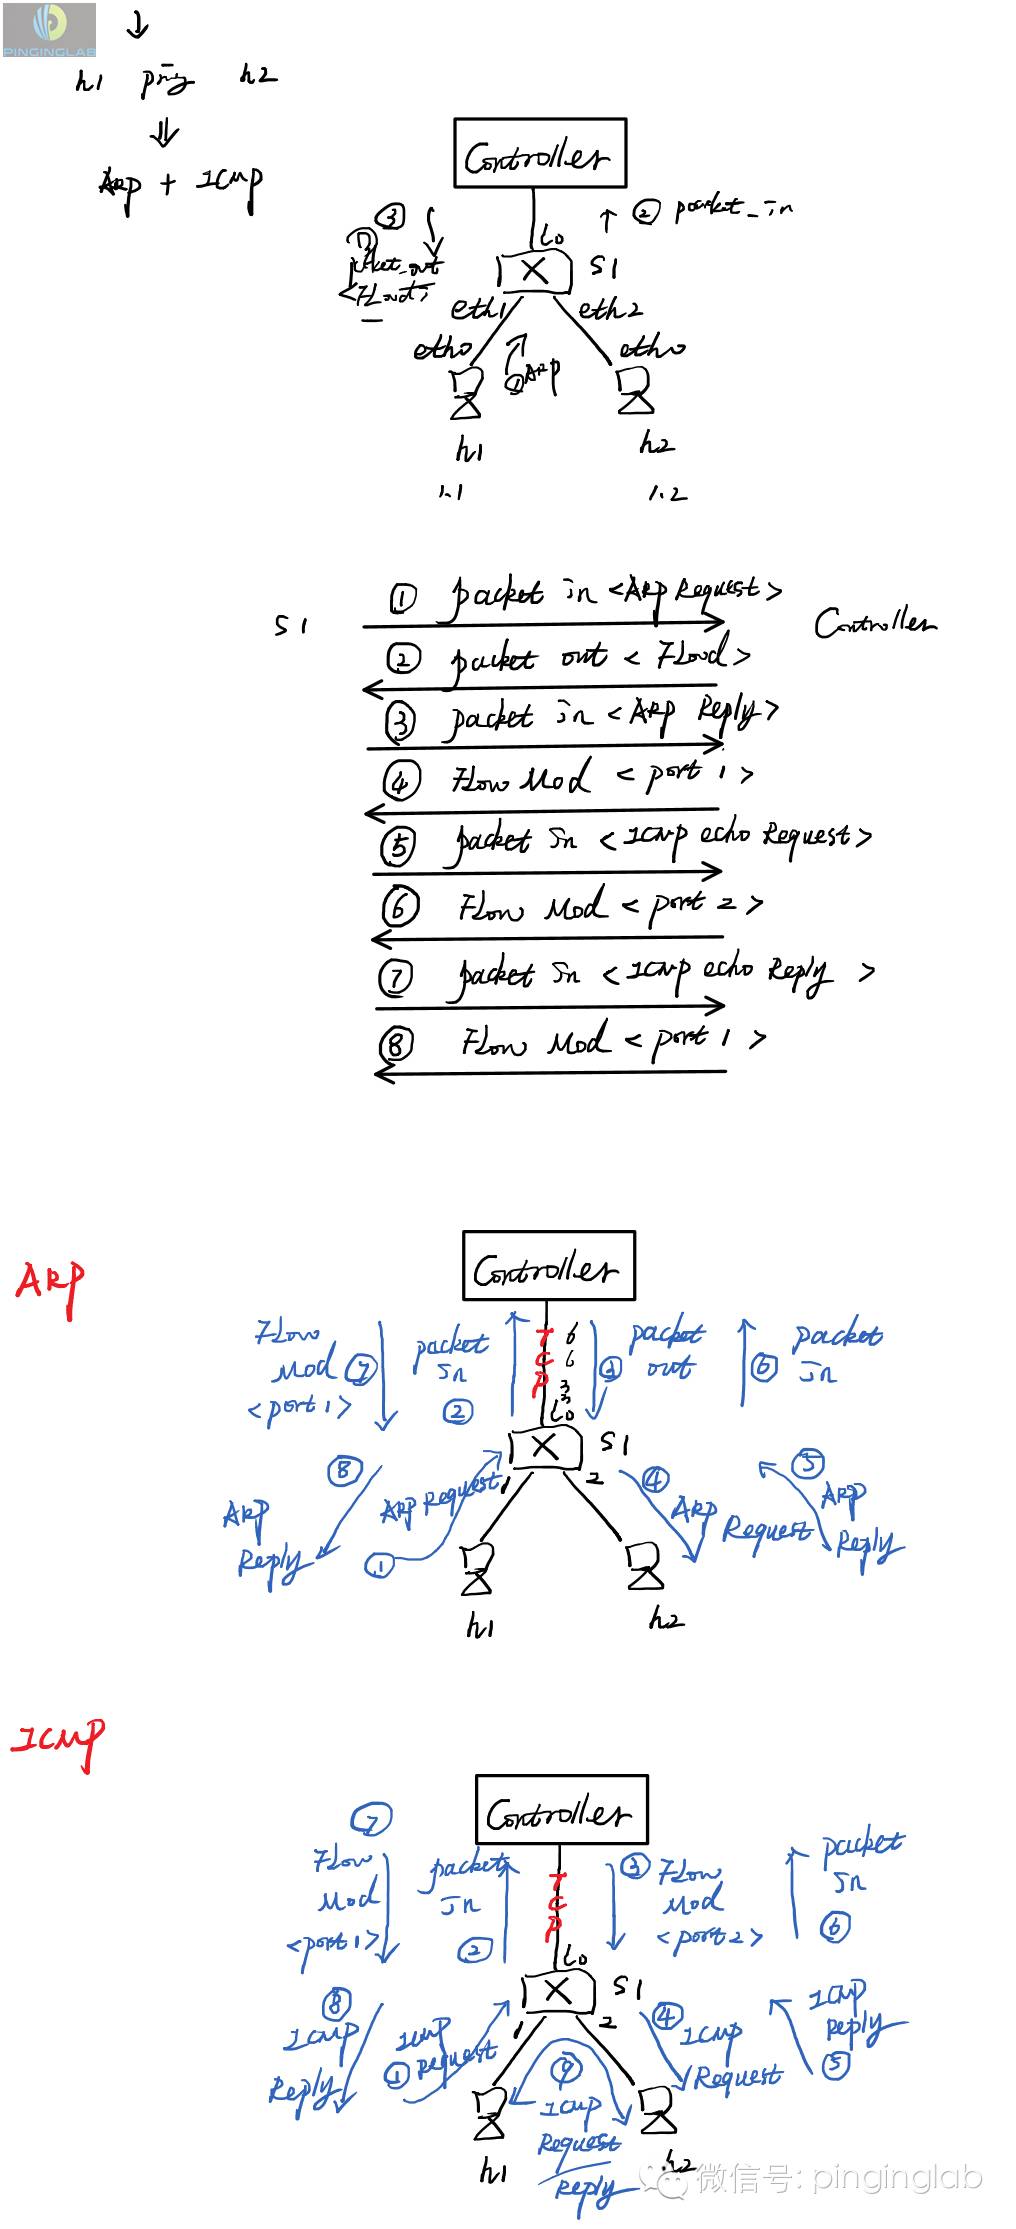 PINGINGLAB
h1 ping h2
ARP + ICMP
Controller
③
② packet_in
lo
packet_out
S1
<Flood>
eth1 eth2
eth0 eth0
① ARP
h1 h2
1.1 1.2
S1
Controller
① packet in <ARP Request>
② packet out <Flood>
③ packet in <ARP Reply>
④ Flow Mod <port 1>
⑤ packet In <ICMP echo Request>
⑥ Flow Mod <port 2>
⑦ packet In <ICMP echo Reply>
⑧ Flow Mod <port 1>
ARP
Controller
Flow Mod ⑦ <port 1>
packet In ②
TCP
6633
③ packet out
⑥ packet In
lo
S1
1 2
⑧ ARP Reply
① ARP Request
④ ARP Request
⑤ ARP Reply
h1 h2
ICMP
Controller
⑦ Flow Mod <port 1>
packet In ②
TCP
③ Flow Mod <port 2>
packet In ⑥
lo
S1
1 2
⑧ ICMP Reply
① ICMP Request
④ ICMP Request
ICMP Reply ⑤
⑨ ICMP Request
Reply
h1 h2
微信号: pinginglab